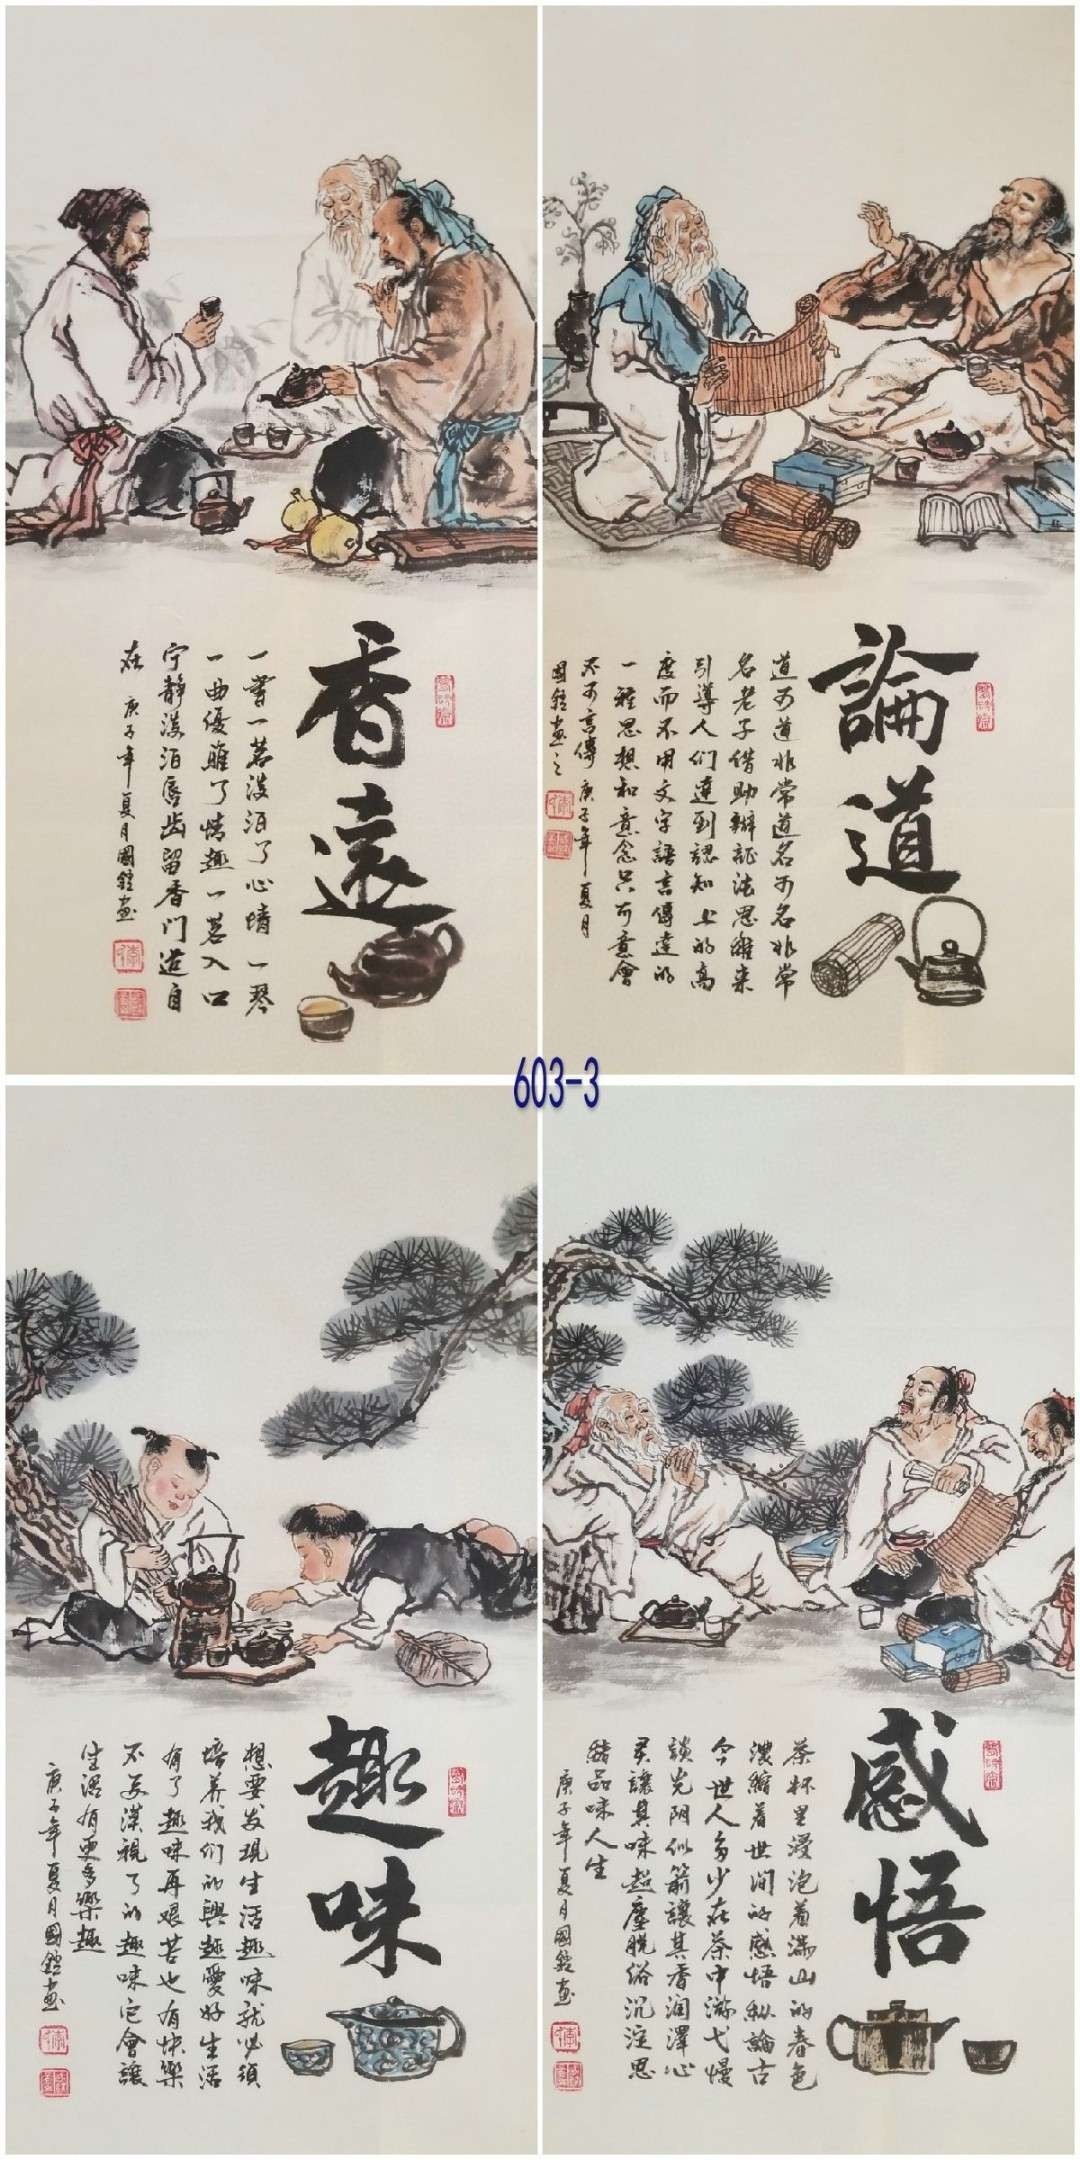 香遠
一嘗一茗淡泊了心情一琴
一曲優雅了情趣一茗入口
宁静淡泊唇齿留香門道自
在 庚子年夏月國画
論道
道可道非常道名可名非常
名老子借助辦証法思維来
引導人们達到認知上的高
度而不用文字語言傳達的
一種思想和意念只可意會
不可言傳 庚子年夏月
國画之
603-3
趣味
想要发現生活趣味就必須
培养我们的興趣愛好生活
有了趣味再艰苦也有快樂
不要漠視了的趣味它會讓
生活有更多樂趣
庚子年夏月國画
感悟
茶杯里浸泡着满山的春色
濃縮着世间的感悟纵論古
今世人多少在茶中游弋慢
談光阴似箭讓其香润澤心
灵讓其味超塵脱俗沉淀思
緒品味人生
庚子年夏月國画